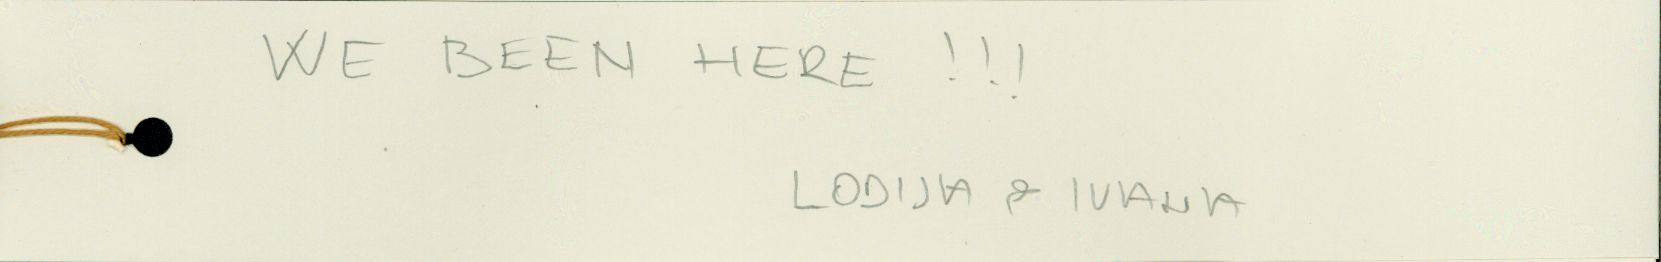 WE BEEN HERE !!!
LODIJA & IVANA